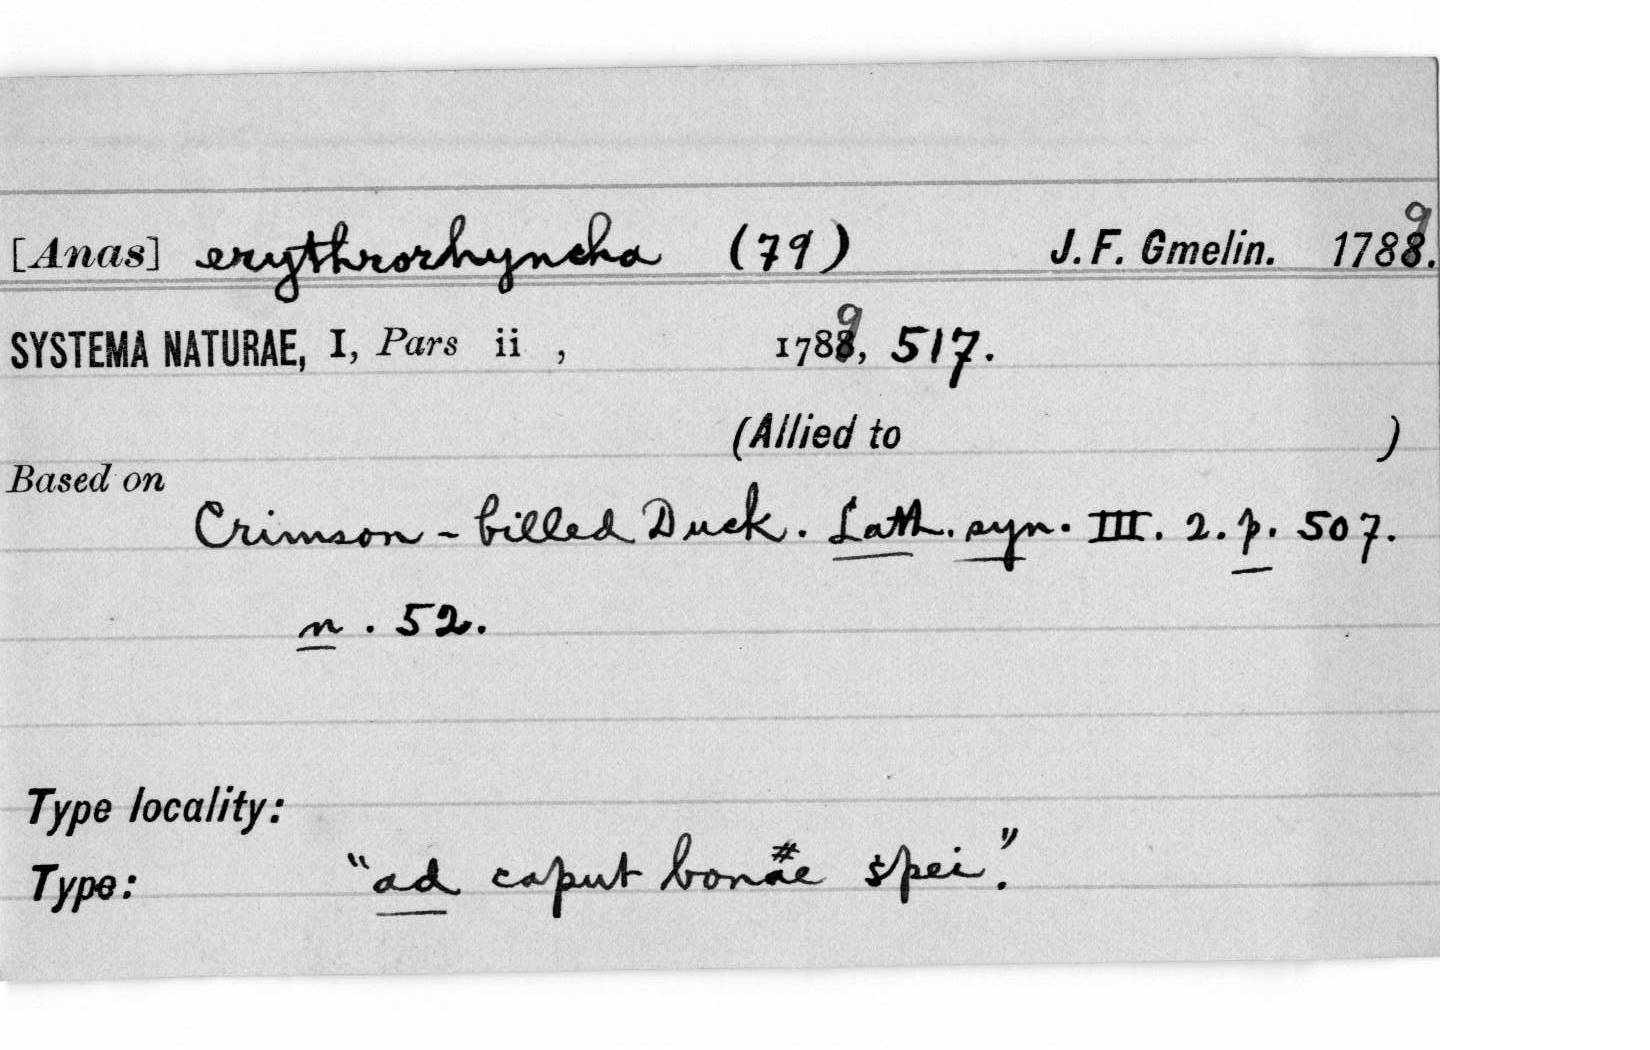 [Anas] erythrorhyncha (79) J. F. Gmelin. 1789.
SYSTEMA NATURAE, I, Pars ii , 1789, 517.
(Allied to )
Based on
Crimson-billed Duck. Lath. syn. III. 2. p. 507.
n. 52.
Type locality:
Type: "ad caput bonae spei."